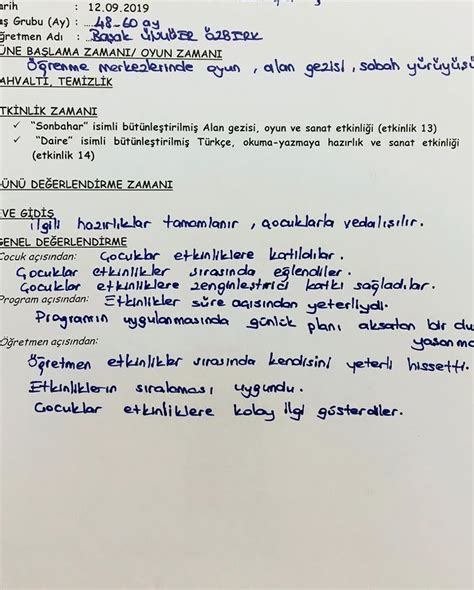 arih : 12.09.2019
aş Grubu (Ay) : 48-60 ay
ğretmen Adı : Başak ÖZBERK
ÜNE BAŞLAMA ZAMANI/ OYUN ZAMANI
Öğrenme merkezlerinde oyun, alan gezisi, sabah yürüyüşü
AHVALTİ, TEMİZLİK
TKİNLİK ZAMANI
✓ "Sonbahar" isimli bütünleştirilmiş Alan gezisi, oyun ve sanat etkinliği (etkinlik 13)
✓ "Daire" isimli bütünleştirilmiş Türkçe, okuma-yazmaya hazırlık ve sanat etkinliği
(etkinlik 14)
ÜNÜ DEĞERLENDİRME ZAMANI
VE GİDİŞ
İlgili hazırlıklar tamamlanır, çocuklarla vedalışılır.
GENEL DEĞERLENDİRME
Çocuk açısından: Çocuklar etkinliklere katıldılar.
Çocuklar etkinlikler sırasında eğlendiler.
Çocuklar etkinliklere zenginleştirici katkı sağladılar.
Program açısından: Etkinlikler süre açısından yeterliydi.
Programın uygulanmasında günlük planı aksatan bir du
yaşanma
Öğretmen açısından:
Öğretmen etkinlikler sırasında kendisini yeterli hissetti.
Etkinliklerin sıralaması uygundu.
Çocuklar etkinliklere kolay ilgi gösterdiler.